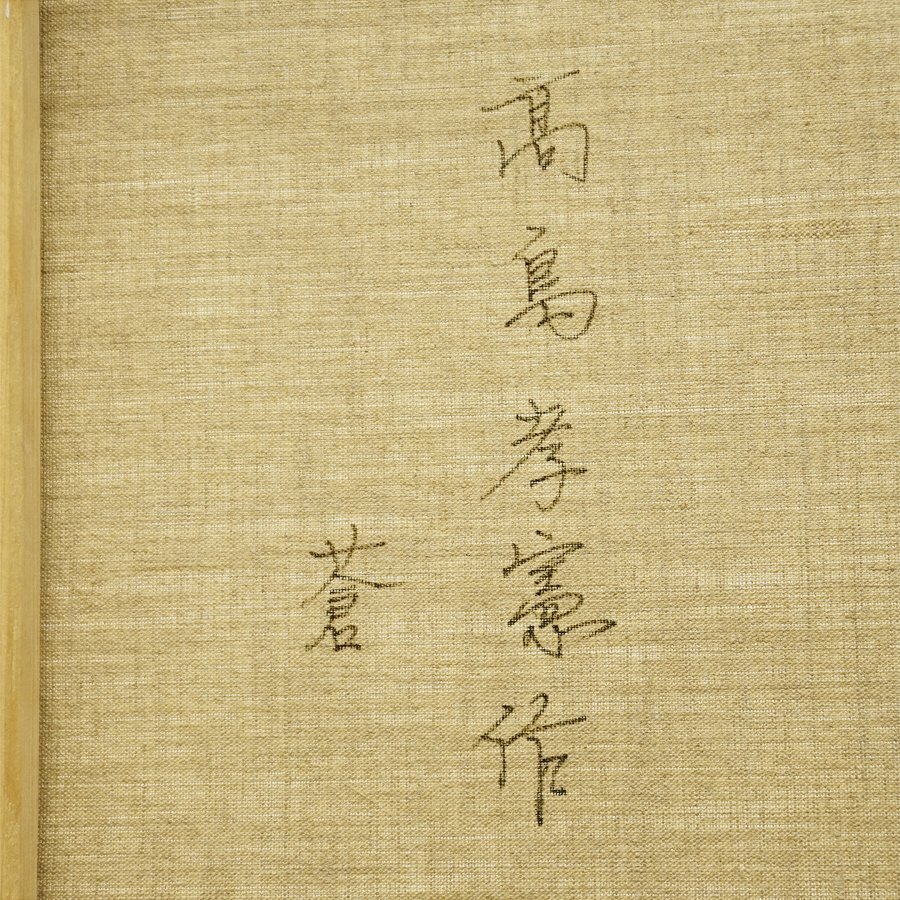 髙島孝憲作
蒼